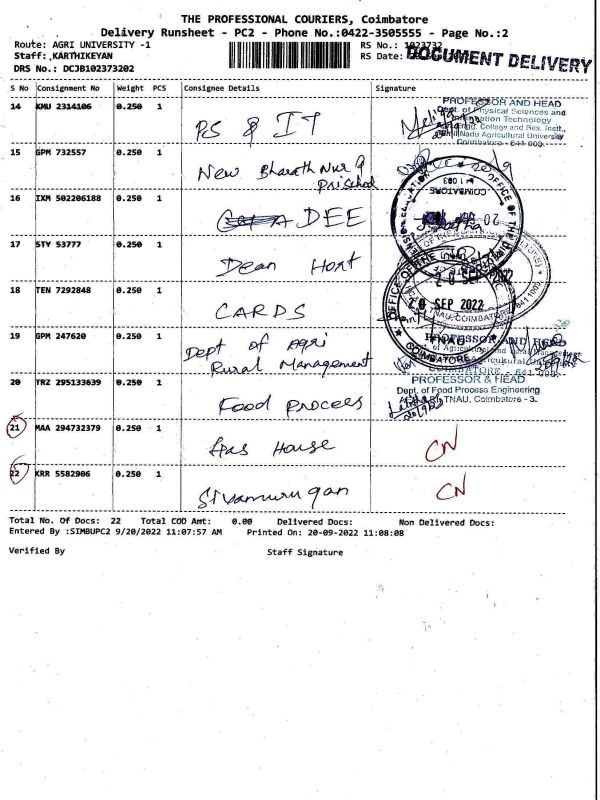 THE PROFESSIONAL COURIERS, Coimbatore
Delivery Runsheet - PC2 - Phone No.:0422-3505555 - Page No.:2
Route: AGRI UNIVERSITY -1
RS No.: 1023732
Staff: KARTHIKEYAN
RS Date:
DOCUMENT DELIVERY
DRS No.: DCJB102373202
S No Consignment No Weight PCS Consignee Details Signature
14 KMU 2314106 0.250 1 PS & IT
PROFESSOR AND HEAD
Dept. of Physical Sciences and
Information Technology
Agrl. Engg. College and Res. Instt.,
Tamil Nadu Agricultural University
Coimbatore - 641 003.
15 GPM 732557 0.250 1 New Bharath Nur &
Prischool
16 IXM 502206188 0.250 1 DEE
17 STY 53777 0.250 1 Dean Hort
OFFICE OF THE
20 SEP 2022
TNAU
COIMBATORE
18 TEN 7292848 0.250 1 CARDS
19 GPM 247620 0.250 1 Dept of Agri
Rural Management
PROFESSOR AND HEAD
COIMBATORE - 641 003.
20 TRZ 295133639 0.250 1 Food process
PROFESSOR & HEAD
Dept. of Food Process Engineering
TNAU, Coimbatore - 3.
21 MAA 294732379 0.250 1 Gas House CN
22 KRR 5582906 0.250 1 Sivamurugan CN
Total No. Of Docs: 22 Total COD Amt: 0.00 Delivered Docs: Non Delivered Docs:
Entered By :SIMBUPC2 9/20/2022 11:07:57 AM Printed On: 20-09-2022 11:08:08
Verified By Staff Signature